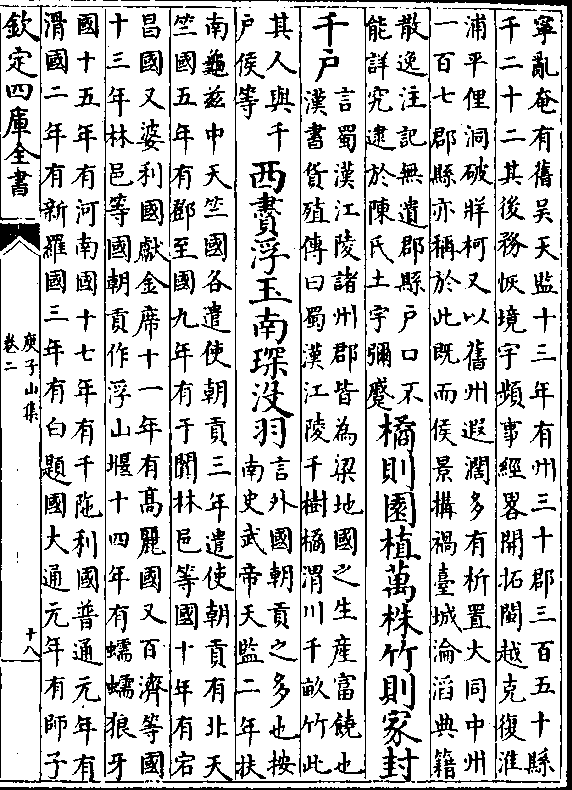 寧亂奄有舊吳天監十三年有州三十郡三百五十縣
千二十二其後務恢境宇頻事經畧開拓閩越克復淮
浦平俚洞破牂柯又以舊州遐濶多有析置大同中州
一百七郡縣亦稱於此既而侯景構禍臺城淪滔典籍
散逸注記無遺郡縣户口不
能詳究逮於陳氏土宇彌蹙
橘則園植萬株竹則家封
千户
言蜀漢江陵諸州郡皆為梁地國之生産富饒也
漢書貨殖傳曰蜀漢江陵千樹橘渭川千畝竹此
其人與千
户侯等
西賮浮玉南琛没羽
言外國朝貢之多也按
南史武帝天監二年扶
南龜兹中天竺國各遣使朝貢三年遣使朝貢有北天
竺國五年有鄧至國九年有于闐林邑等國十年有宕
昌國又婆利國獻金席十一年有高麗國又百濟等國
十三年林邑等國朝貢作浮山堰十四年有蠕蠕狼牙
國十五年有河南國十七年有千陁利國普通元年有
滑國二年有新羅國三年有白題國大通元年有師子
欽定四庫全書
庾子山集
卷二
十八